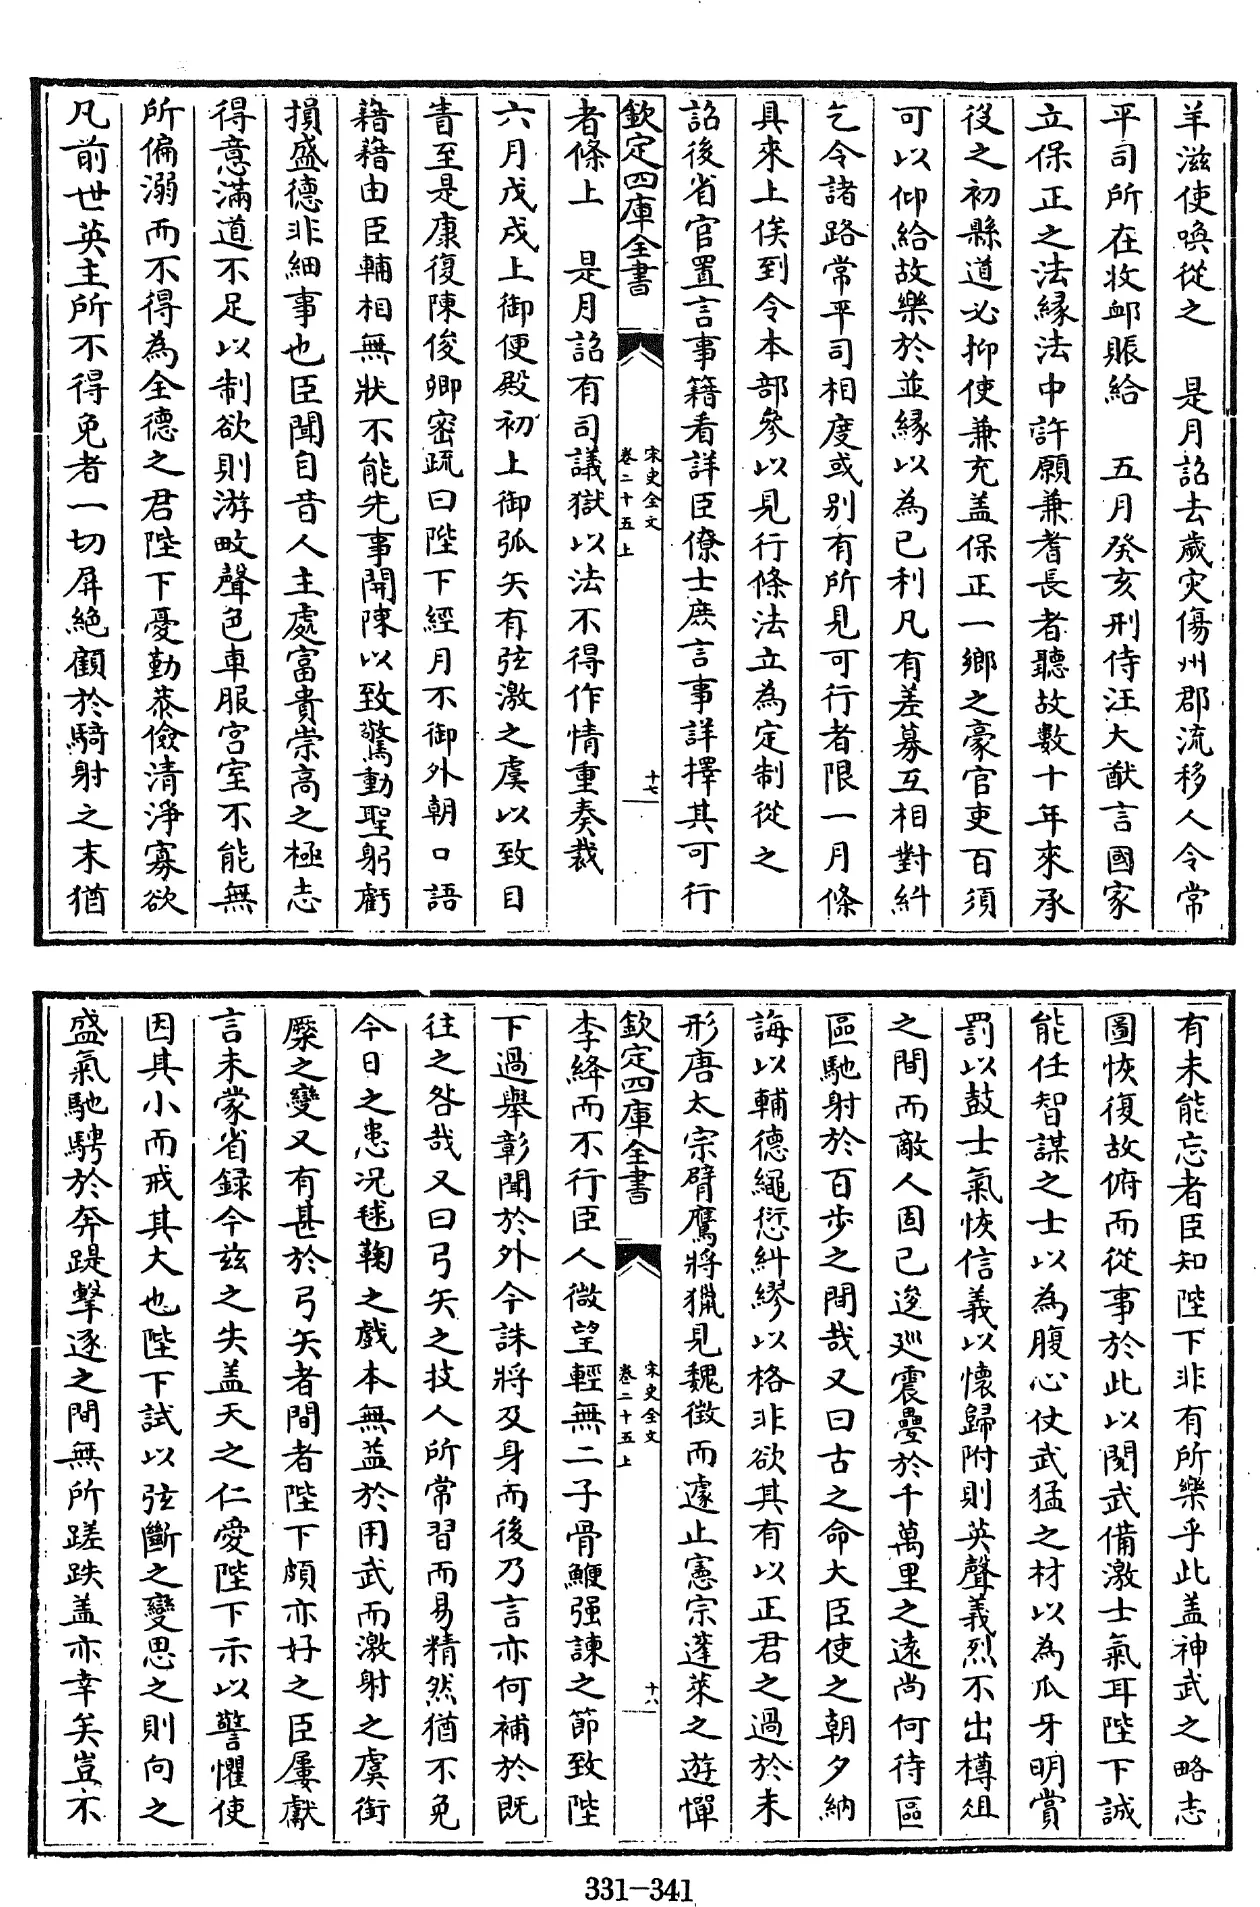 羊滋使喚從之　是月詔去歲灾傷州郡流移人令常
平司所在收䘏賬給　五月癸亥刑侍汪大猷言國家
立保正之法緣法中許願兼耆長者聽故數十年來承
役之初縣道必抑使兼充盖保正一鄉之豪官吏百須
可以仰給故樂於並緣以為己利凡有差募互相對糾
乞令諸路常平司相度或别有所見可行者限一月條
具來上俟到令本部參以見行條法立為定制從之
詔後省官置言事籍看詳臣僚士庶言事詳擇其可行
欽定四庫全書
宋史全文
卷二十五上
十七
者條上　是月詔有司議獄以法不得作情重奏裁
六月戊戌上御便殿初上御弧矢有弦激之虞以致目
眚至是康復陳俊卿密疏曰陛下經月不御外朝口語
籍籍由臣輔相無狀不能先事開陳以致驚動聖躬虧
損盛德非細事也臣聞自昔人主處富貴崇高之極志
得意滿道不足以制欲則游畋聲色車服宫室不能無
所偏溺而不得為全德之君陛下憂勤恭儉清淨寡欲
凡前世英主所不得免者一切屏絶顧於騎射之末猶
有未能忘者臣知陛下非有所樂乎此盖神武之略志
圖恢復故俯而從事於此以閲武備激士氣耳陛下誠
能任智謀之士以為腹心仗武猛之材以為爪牙明賞
罰以鼓士氣恢信義以懷歸附則英聲義烈不出樽俎
之間而敵人固已逡廵震疊於千萬里之遠尚何待區
區馳射於百步之間哉又曰古之命大臣使之朝夕納
誨以輔德繩愆糾繆以格非欲其有以正君之過於未
形唐太宗臂鷹將獵見魏徴而遽止憲宗蓬萊之遊憚
欽定四庫全書
宋史全文
卷二十五上
十八
李絳而不行臣人微望輕無二子骨鯁强諫之節致陛
下過舉彰聞於外今誅將及身而後乃言亦何補於既
往之咎哉又曰弓矢之技人所常習而易精然猶不免
今日之患况毬鞠之戲本無益於用武而激射之虞銜
橜之變又有甚於弓矢者間者陛下頗亦好之臣屢獻
言未蒙省録今兹之失盖天之仁愛陛下示以警懼使
因其小而戒其大也陛下試以弦斷之變思之則向之
盛氣馳騁於奔踶擊逐之間無所蹉跌盖亦幸矣豈不
331-341